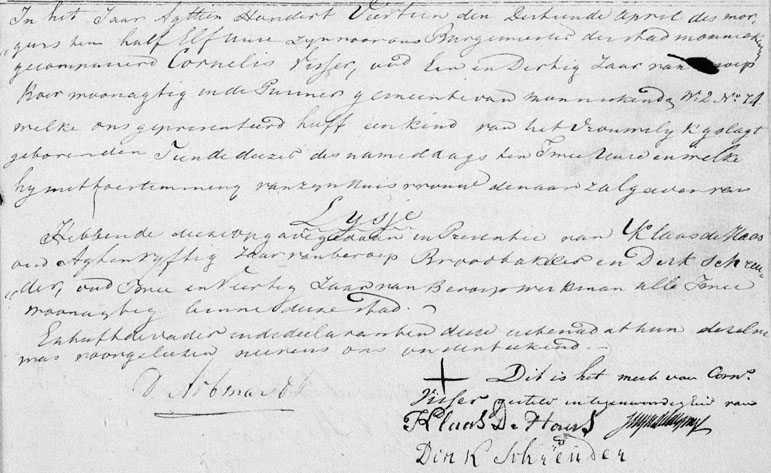 In het Jaar Agttien Hondert Viertien den Dertiende April des mor-
„gens ten half Elf Uure zyn voor ons Burgemeester der stad monnick
gecompareerd Cornelis Visser, oud Een en Dertig Jaar van beroep
Koer moonagtig in de Purmer gemeente van monnickend W. 2 No. 74
welke ons gepresenteerd heeft een kind van het Vrouwelyk geslagt
geboren den Tiende dezer des namiddags ten Twee Uure en welke
hy met toestemming van zyn Huisvrouw de naam zal geven van
Lysje
Hebbende deze opgave gedaan in Presentie van Klaas de Haas
oud Agt en vyftig Jaar van beroep Broodbakker en Derk Schreu-
„der, oud Twee en Veertig Jaar van Beroep werkman alle Twee
moonagtig binnen deze stad.
En heeft de vader in de declaranten deze acte nadat hun dezelve
was voorgelezen nevens ons onderteekend.
Dit is het merk van Corns.
Visser gesteld in tegenwoordigheid van
Klaas De Haas
Dirk Schreuder